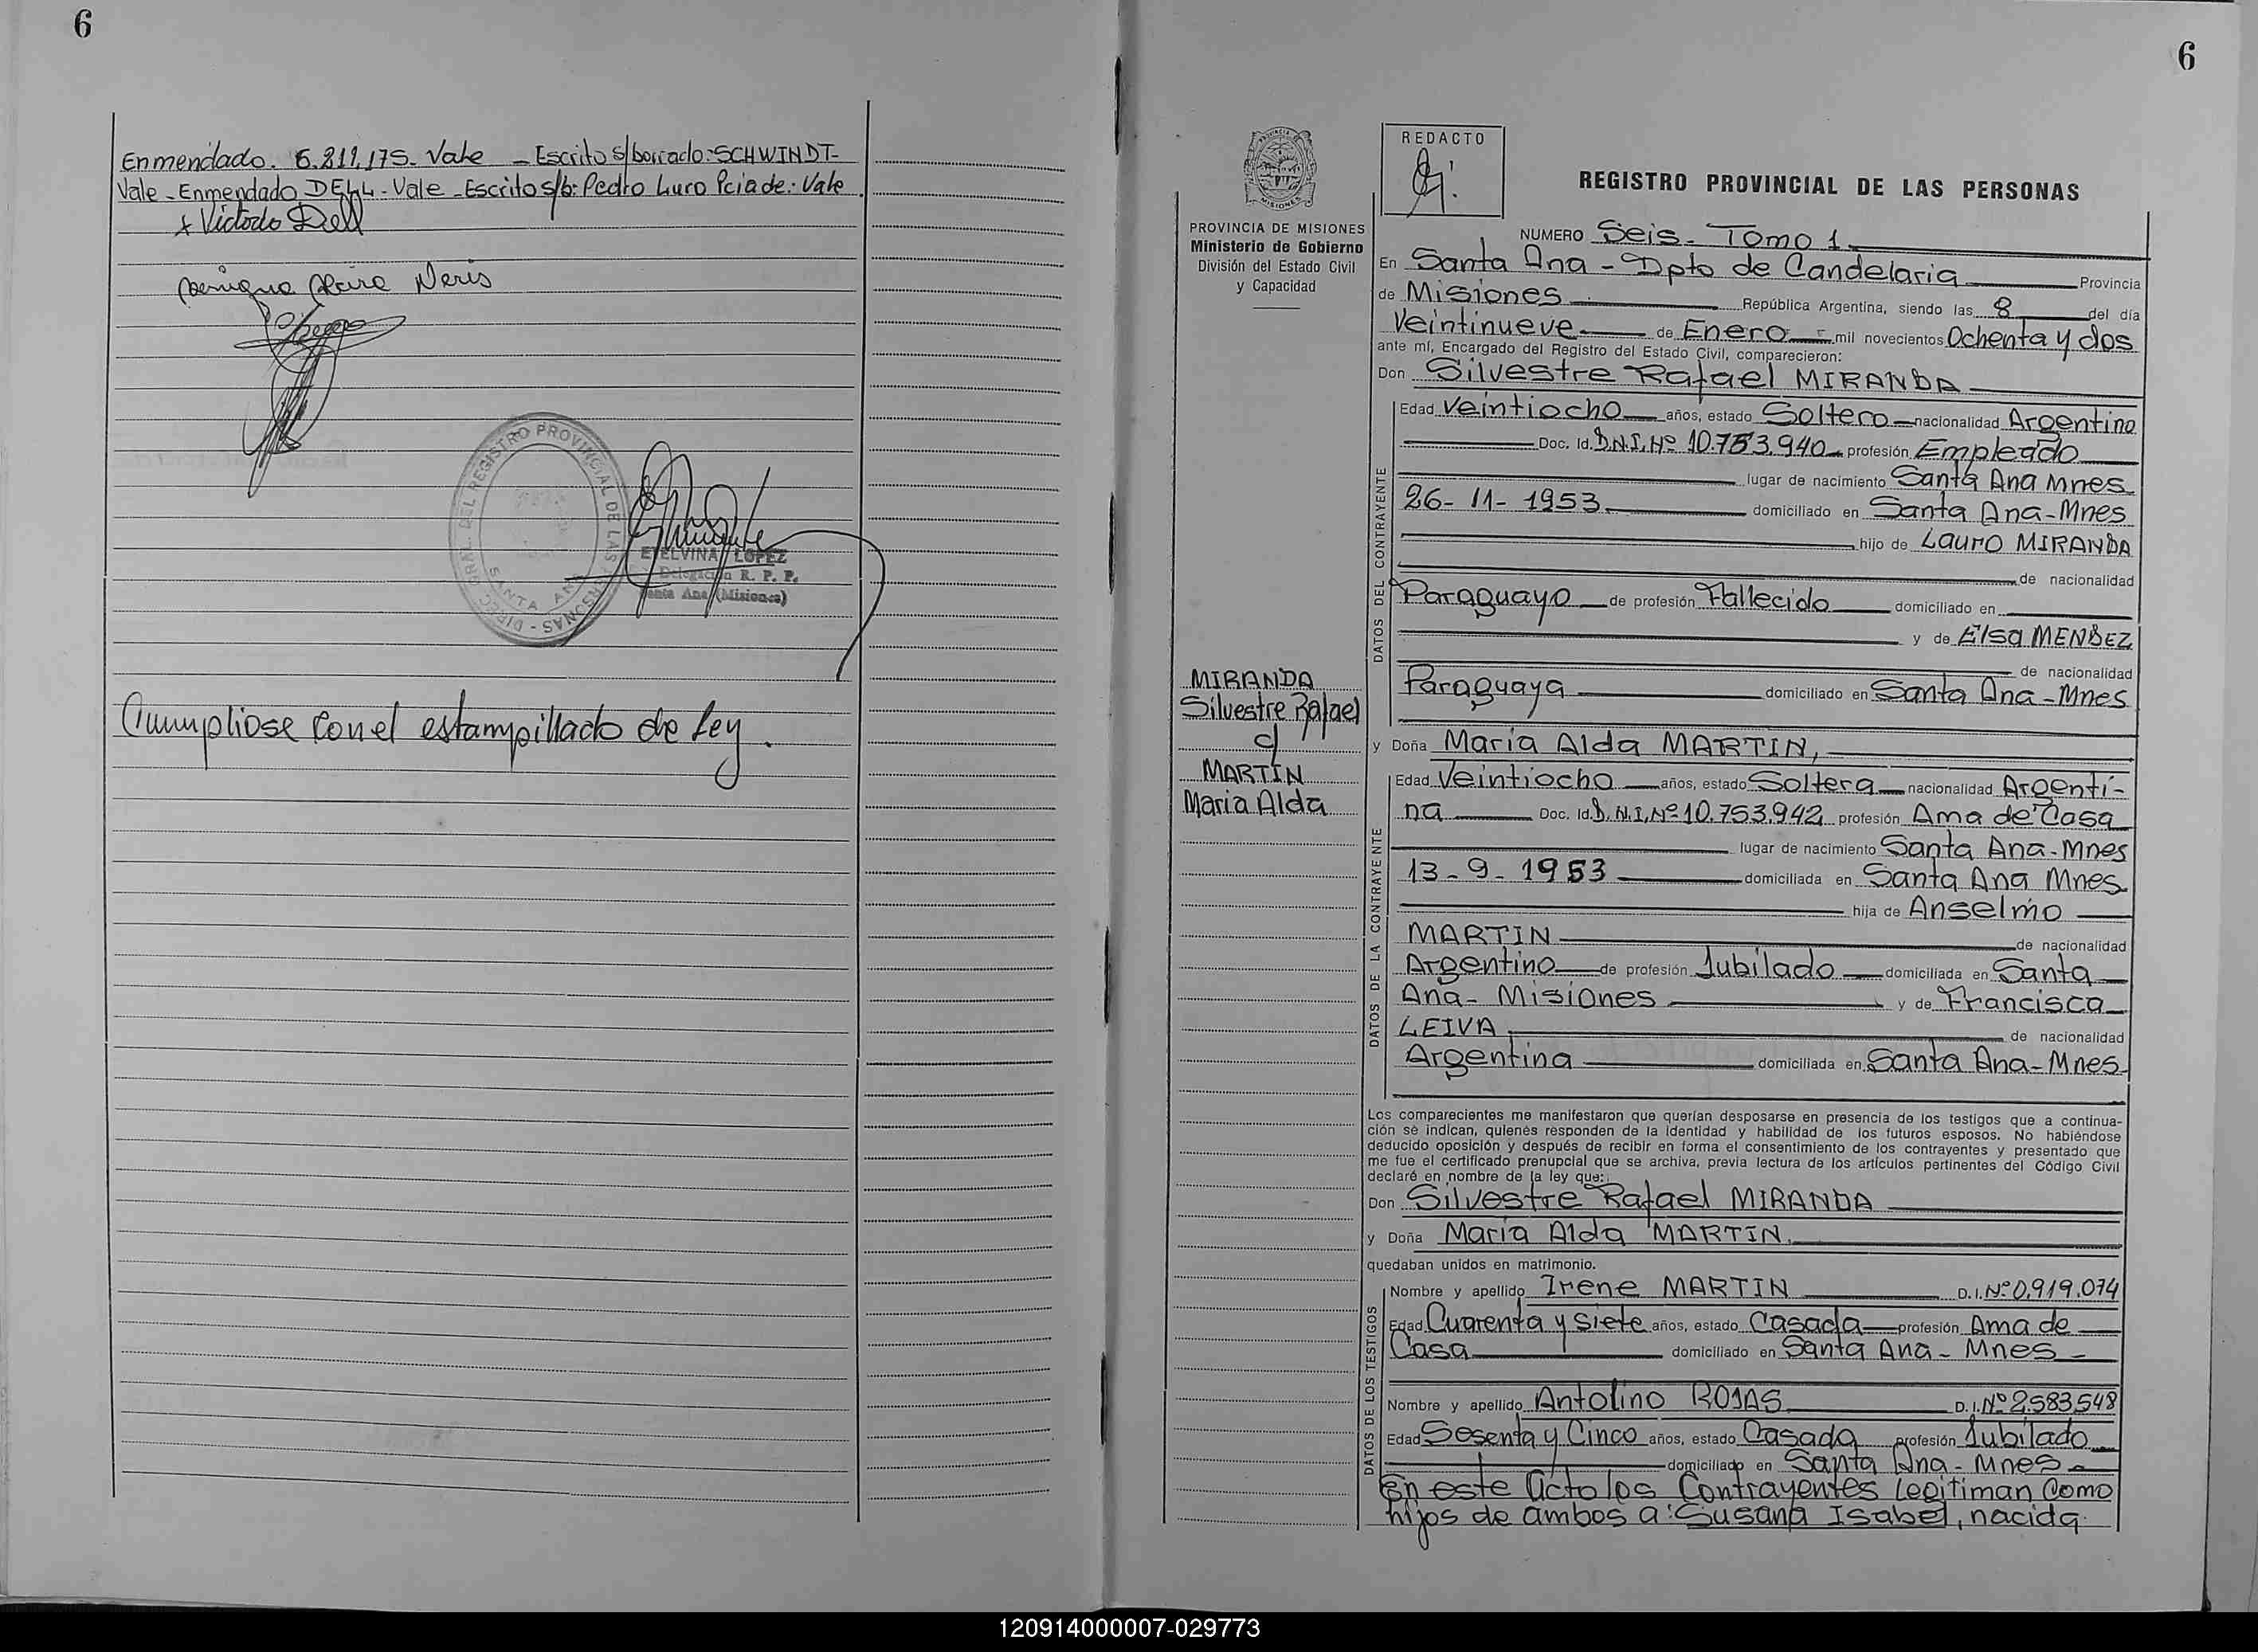 6
Enmendado. 6.211.175- Vale - Escrito s/borrado: SCHWINDT-
Vale - Enmendado DELL - Vale - Escrito s/b: Pedro Luro Pcia de: Vale
Dell
Neris
DIREC. GRAL. DEL REGISTRO PROVINCIAL DE LAS PERSONAS -
SANTA ANA
ETELVINA LOPEZ
R. P. P.
Santa Ana (Misiones)
Cumpliose con el estampillado de ley.
6
MISIONES
PROVINCIA DE MISIONES
Ministerio de Gobierno
División del Estado Civil
y Capacidad
MIRANDA
Silvestre Rafael
c/
MARTIN
Maria Alda
REDACTO
REGISTRO PROVINCIAL DE LAS PERSONAS
NUMERO Seis - Tomo 1
En Santa Ana - Dpto de Candelaria Provincia
de Misiones República Argentina, siendo las 8 del día
Veintinueve de Enero mil novecientos Ochenta y dos
ante mí, Encargado del Registro del Estado Civil, comparecieron:
Don Silvestre Rafael MIRANDA
DATOS DEL CONTRAYENTE
Edad Veintiocho años, estado Soltero nacionalidad Argentino
Doc. Id. D.N.I. Nº 10.753.940 profesión Empleado
lugar de nacimiento Santa Ana Mnes
26-11-1953 domiciliado en Santa Ana-Mnes
hijo de Lauro MIRANDA
de nacionalidad
Paraguayo de profesión Fallecido domiciliado en
y de Elsa MENDEZ
de nacionalidad
Paraguaya domiciliado en Santa Ana-Mnes
y Doña Maria Alda MARTIN,
DATOS DE LA CONTRAYENTE
Edad Veintiocho años, estado Soltera nacionalidad Argenti-
na Doc. Id. D.N.I. Nº 10.753.942 profesión Ama de Casa
lugar de nacimiento Santa Ana-Mnes
13-9-1953 domiciliada en Santa Ana Mnes
hija de Anselmo
MARTIN de nacionalidad
Argentino de profesión Jubilado domiciliada en Santa
Ana- Misiones y de Francisca
LEIVA de nacionalidad
Argentina domiciliada en Santa Ana-Mnes
Los comparecientes me manifestaron que querían desposarse en presencia de los testigos que a continua-
ción se indican, quienes responden de la identidad y habilidad de los futuros esposos. No habiéndose
deducido oposición y después de recibir en forma el consentimiento de los contrayentes y presentado que
me fue el certificado prenupcial que se archiva, previa lectura de los artículos pertinentes del Código Civil
declaré en nombre de la ley que:
Don Silvestre Rafael MIRANDA
y Doña Maria Alda MARTIN.
quedaban unidos en matrimonio.
DATOS DE LOS TESTIGOS
Nombre y apellido Irene MARTIN D.I. Nº 0.919.074
Edad Cuarenta y siete años, estado Casada profesión Ama de
Casa domiciliado en Santa Ana - Mnes
Nombre y apellido Antolino ROJAS D.I. Nº 2.583.548
Edad Sesenta y Cinco años, estado Casado profesión Jubilado
domiciliado en Santa Ana - Mnes
En este acto los Contrayentes legitiman Como
hijos de ambos a: Susana Isabel, nacida
120914000007-029773